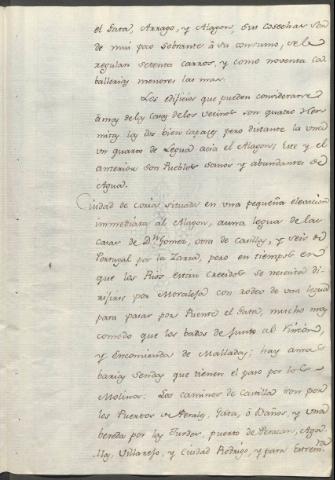 el Gata, Arrago, y Alagon, sus cosechas son
de mui poco sobrante à su consumo, se le
regulan setenta carros, y como noventa ca
ballerias menores las mas.
Los edificios que pueden considerarse
à mas de las casas de los vecinos son quatro Her
mitas las dos bien capaces pero distante la una
un quarto de Legua acia el Alagon; este y el
anterior son Pueblos sanos y abundantes de
Agua.
Ciudad de Coria situada en una pequeña elevacion
immediata al Alagon, a una legua de las
Casas de Dn Gomez, otra de Casillas, y seis de
Portugal por la Zarza, pero en tiempos en
que los Rios estan crecidos se necesita di-
rigirse por Moraleja con rodeo de una legua
para pasar por Puente el Gata, mucho mas
comodo que los bados de junto al Rincon,
y Encomienda de Malladas; hay
barias sendas que tienen el paso por los
Molinos. Los caminos de Castilla son por
los Puertos de Perales, Gata, ò Baños, y una
bereda por las Jurdes, puerto de
Villarejo, y Ciudad Rodrigo, y para Extrem.ra